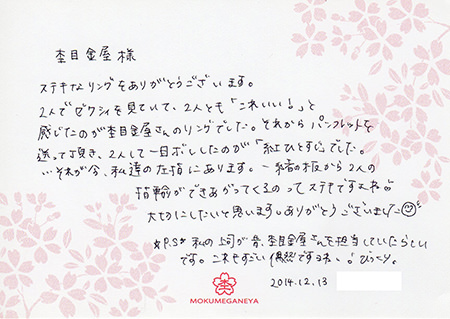 杢目金屋 様
ステキなリングをありがとうございます。
2人でゼクシィを見ていて、2人とも「これいい!」と
感じたのが杢目金屋さんのリングでした。それからパンフレットを
送って頂き、2人して一目ボレしたのが「紅ひとすじ」でした。
…それが今、私達の左指にあります。一緒の板から2人の
指輪ができあがってくるのってステキですよね。
大切にしたいと思います。ありがとうございました
P.S 私の上司が昔、杢目金屋さんを担当していたらしい
です。これもすごい偶然ですヨネ。! びっくり。
2014.12.13
MOKUMEGANEYA